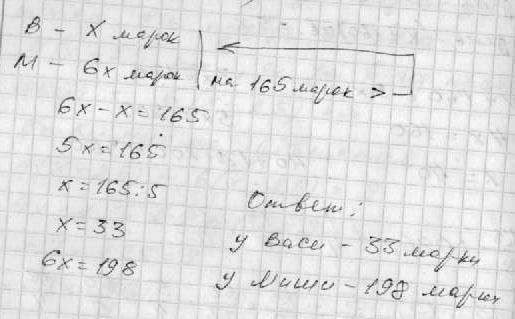 В - х марок
М - 6х марок
на 165 марок >
6х - х = 165
5х = 165
х = 165 : 5
х = 33
6х = 198
Ответ:
у Васи - 33 марки
у Миши - 198 марок